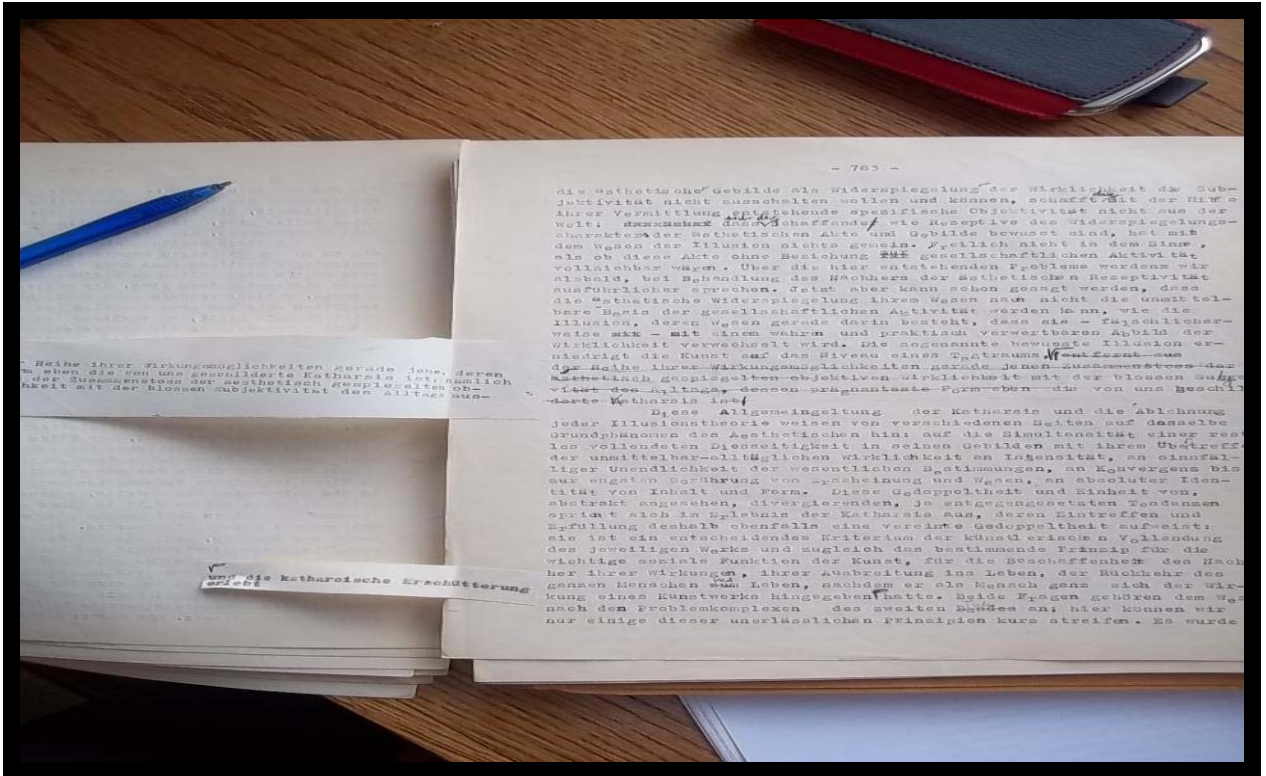 Reihe ihrer Wirkungsmöglichkeiten gerade jene, deren
eben die von uns geschilderte Katharsis ist, nämlich
der Zusammenstoss der aesthetisch gespiegelten ob-
keit mit der blosen Subjektivität des Alltags aus-
und die katharsische Erschütterung
erlebt
- 763 -
die ästhetische Gebilde als Widerspiegelung der Wirklichkeit die Sub-
jektivität nicht ausschalten wollen und können, schafft mit der Hilfe
ihrer Vermittlung entstehende spezifische Objektivität nicht aus der
Welt; dass Schaffende wie Rezeptive des Widerspiegelungs-
charakters der ästhetischen Akte und Gebilde bewusst sind, hat mit
dem Wesen der Illusion nichts gemein. Freilich nicht in dem Sinne,
als ob diese Akte ohne Beziehung gesellschaftlichen Aktivität
vollziehbar wären. Über die hier entstehenden Probleme werdens wir
alsbald, bei Behandlung des Nachhers der ästhetischen Rezeptivität
ausführlicher sprechen. Jetzt aber kann schon gesagt werden, dass
die ästhetische Widerspiegelung ihrem Wesen nach nicht die unmittel-
bare Basis der gesellschaftlichen Aktivität werden kann, wie die
Illusion, deren Wesen gerade darin besteht, dass sie - fälschlicher-
weise - mit einem wahren und praktisch verwertbaren Abbild der
Wirklichkeit verwechselt wird. Die sogenannte bewusste Illusion er-
niedrigt die Kunst auf das Niveau eines Tagtraums. entfernt aus
der Reihe ihrer Wirkungsmöglichkeiten gerade jenen Zusammenstoss der
ästhetisch gespiegelten objektiven Wirklichkeit mit der blossen Subje
vität des Alltags, dessen prägnanteste Form eben die von uns geschil
derte Katharsis ist.
Diese Allgemeingeltung der Katharsis und die Ablehnung
jeder Illusionstheorie weisen von verschiedenen Seiten auf dasselbe
Grundphänomen des Aesthetischen hin: auf die Simultaneität einer rest
los vollendeten Diesseitigkeit in seinen Gebilden mit ihrem Übertreff
der unmittelbar-alltäglichen Wirklichkeit an Intensität, an sinnfäl-
liger Unendlichkeit der wesentlichen Bestimmungen, an Konvergenz bis
zur engsten Berührung von Erscheinung und Wesen, an absoluter Iden-
tität von Inhalt und Form. Diese Gedoppeltheit und Einheit von,
abstrakt angesehen, divergierenden, ja entgegengesetzten Tendenzen
spricht sich im Erlebnis der Katharsis aus, deren Eintreffen und
Erfüllung deshalb ebenfalls eine vereinte Gedoppeltheit aufweist:
sie ist ein entscheidendes Kriterium der künstlerischen Vollendung
des joweiligen Werks und zugleich das bestimmende Prinzip für die
wichtige soziale Funktion der Kunst, für die Beschaffenheit des Nach
her ihrer Wirkungen, ihrer Ausbreitung ins Leben, der Rückkehr des
ganzen Menschen Leben, nachdem er als Mensch ganz sich der Wir-
kung eines Kunstwerks hingegeben hatte. Beide Fragen gehören dem Wes
nach den Problemkomplexen des zweiten an; hier können wir
nur einige dieser unerlässlichen Prinzipien kurz streifen. Es wurde